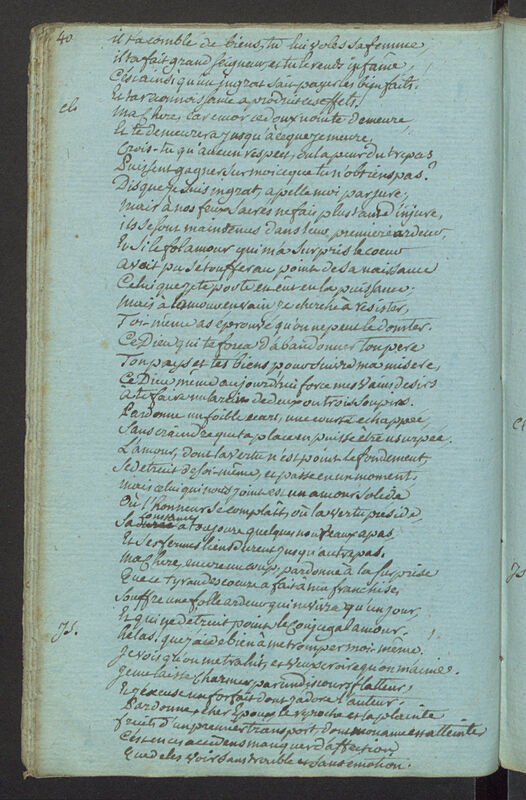 40
il t'a comblé de biens, tu lui voles sa femme,
il t'a fait grand seigneur, et tu le rends infâme,
C'est ainsi qu'un ingrat sait payer les bienfaits.
Et ta reconnoissance a produit ces effets.
cl.
ma chere, car encor ce doux nom te demeure,
Et te demeurera jusqu'à ce que je meure,
Crois-tu qu'aucun respect, ou la peur du trepas
Puissent gagner sur moi ce que tu n'obtiens pas?
Dis que je suis ingrat, apelle moi parjure,
mais à nos feux sacrés ne fait plus tant d'injure,
ils se sont maintenus dans leur premiere ardeur,
Et si le fol amour qui m'a surpris le coeur
avoit pu s'étouffer au point de sa naissance
Celui que je te porte en eut eu la puissance;
mais à l'amour en vain je cherche à resister,
Toi-même as éprouvé qu'on ne peut le domter.
Ce Dieu qui te força d'abandonner ton pere
Ton pays et tes biens pour suivre ma misere,
Ce Dieu meme aujourd'hui force mes vains desirs
à te faire un larcin de deux ou trois soupirs.
Pardonne un foible écart, une course échappée,
Sans craindre que ta place en puisse être usurpée.
L'amour, dont la vertu n'est point le fondement,
Se detruit de soi-même, et passe en un moment;
mais celui qui nous joint est un amour solide
Où l'honneur se complait, où la vertu preside,
constance
Sa a toujours quelques nouveaux apas,
Et ses fermes liens durent jusqu'au trepas.
ma chere, encore un coup, pardonne à la surprise
Que ce tyran des coeurs a fait à ma franchise,
Souffre une folle ardeur qui ne vivra qu'un jour,
Et qui ne detruit point le conjugal amour.
Js.
helas! que j'aide bien à me tromper moi-même.
Je vois qu'on me trahit, et veux croire qu'on m'aime.
Je me laisse charmer par un discours flatteur,
Et j'excuse un forfait dont j'adore l'auteur.
Pardonne, cher Epoux, le reproche et la plainte
fruits d'un premier transport dont mon ame est atteinte
C'est en ces accidens manquer d'affection
Que de les voir sans trouble et sans emotion.